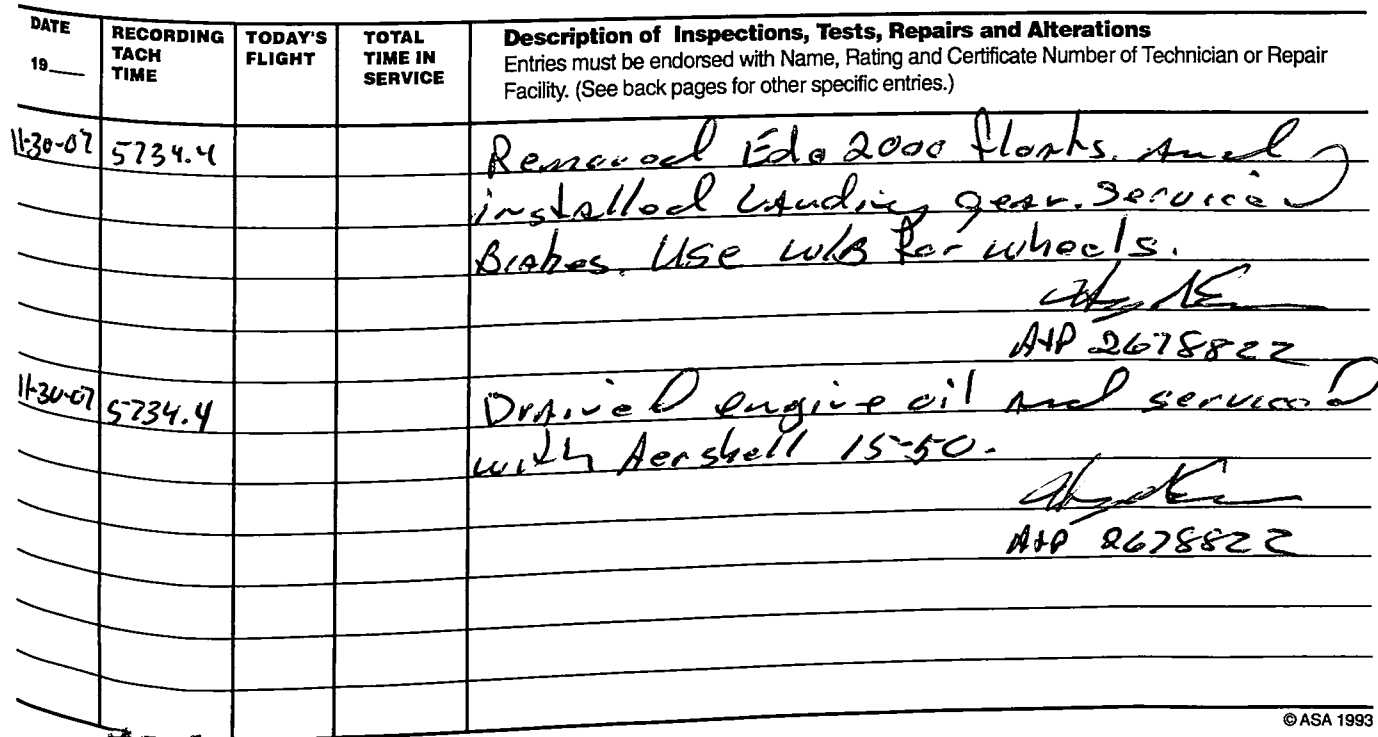 DATE
19
RECORDING TACH TIME
TODAY'S FLIGHT
TOTAL TIME IN SERVICE
Description of Inspections, Tests, Repairs and Alterations
Entries must be endorsed with Name, Rating and Certificate Number of Technician or Repair
Facility. (See back pages for other specific entries.)
11-30-07 5734.4 Removed Edo 2000 floats and
installed Landing gear. Serviced
Brakes. Use W/B for wheels.
A+P 2678822
11-30-07 5734.4 Drained engine oil and serviced
with Aershell 15-50.
A+P 2678822
© ASA 1993